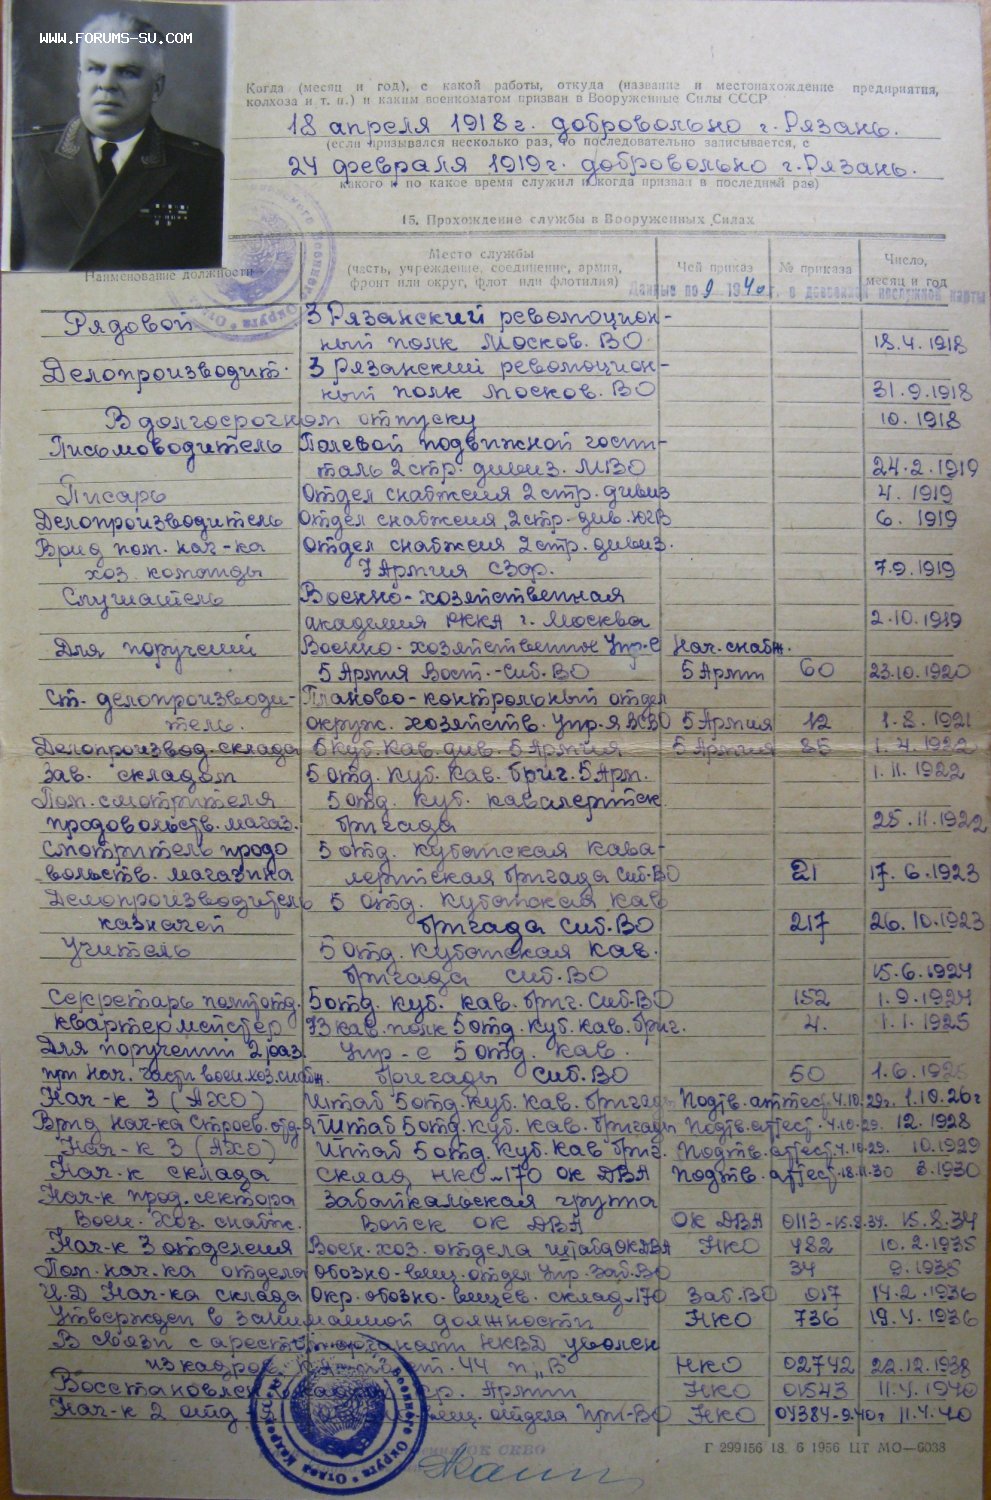 WWW.FORUMS-SU.COM
Когда (месяц и год), с какой работы, откуда (название и местонахождение предприятия,
колхоза и т. п.) и каким военкоматом призван в Вооруженные Силы СССР
18 апреля 1918 г. добровольно г. Рязань.
(если призывался несколько раз, то последовательно записывается, с
24 февраля 1919 г. добровольно г. Рязань.
какого и по какое время служил и когда призван в последний раз)
15. Прохождение службы в Вооруженных Силах
Наименование должности Место службы (часть, учреждение, соединение, армия, фронт или округ, флот или флотилия) Чей приказ № приказа Число, месяц и год
Данные по 9 1940 г. с послужной карты
Рядовой 3 Рязанский революцион-
ный полк Москов. ВО 18.4.1918
Делопроизводит. 3 Рязанский революцион-
ный полк Москов. ВО 31.9.1918
В долгосрочном отпуску 10.1918
Письмоводитель Полевой подвижной госпи-
таль 2 стр. дивиз. МВО 24.2.1919
Писарь Отдел снабжения 2 стр. дивиз 4.1919
Делопроизводитель Отдел снабжения 2 стр. див. 6.1919
Врид пом. нач-ка Отдел снабжения 2 стр. дивиз.
хоз. команды 7 Армия 7.9.1919
Слушатель Военно-хозяйственная
академия РККА г. Москва 2.10.1919
Для поручений Военно-хозяйственное Упр-е Нач. снабж.
5 Армия Вост.-Сиб. ВО 5 Арми 60 23.10.1920
Ст. делопроизводи- Планово-контрольный отдел
тель. окруж. хозяйств. Упр-я ВСВО 5 Армия 12 1.8.1921
Делопроизвод. склада 5 Куб. кав. див. 5 Армия 5 Армия 85 1.4.1922
Зав. складом 5 отд. Куб. кав. бриг. 5 Арм. 1.11.1922
Пом. смотрителя 5 отд. Куб. кавалерийск.
продовольств. магаз. бригада 25.11.1922
Смотритель продо 5 отд. Кубанская кава-
вольств. магазина лерийская бригада Сиб. ВО 21 17.6.1923
Делопроизводитель 5 отд. Кубанская кав
казначей бригада Сиб. ВО 217 26.10.1923
Учитель 5 отд. Кубанская кав.
бригада Сиб. ВО 15.6.1924
Секретарь политотд. 5 отд. Куб. кав. бриг. Сиб. ВО 152 1.9.1924
Квартермейстер 73 кав. полк 5 отд. Куб. кав. бриг. 4. 1.1.1925
Для поручений 2 раз. Упр-е 5 отд. кав.
при нач. части воен. хоз. снабж. бригады Сиб. ВО 50 1.6.
Нач-к 3 (АХО) Штаб 5 отд. Куб. кав. бригады Подтв. аттест. 4.10.29г. 1.10.26г
Врид нач-ка Строев. отд-я Штаб 5 отд. Куб. кав. бригады Подтв. аттест. 4.10.29. 12.1928
Нач-к 3 (АХО) Штаб 5 отд. Куб. кав. бриг. Подтв. аттест. 4.10.29. 10.1929
Нач-к склада Склад НКО-170 ОК ДВА Подтв. аттест. 18.11.30 8.1930
Нач-к прод. сектора Забайкальская группа
Воен. хоз. снабж. Войск ОК ДВА ОК ДВА 0113-15.8.34. 15.8.34
Нач-к 3 отделения Воен. хоз. отдела штаба ОКДВА НКО 482 10.2.1935
Пом. нач-ка отдела Обозно-вещ. отдел Упр. Заб. ВО 34 9.1935
И.Д. Нач-ка склада Окр. обозно-вещев. склад-170 Заб. ВО 017 14.2.1936
Утвержден в занимаемой должности НКО 736 19.4.1936
В связи с арестом органами НКВД уволен
из кадров ст. 44 п. „В" НКО 02742 22.12.1938
Восстановлен в кадрах Армии НКО 01543 11.4.1940
Нач-к 2 отд вещ. отдела При-ВО НКО 04384-9.40г 11.4.40
Г 299156 18. 6 1956 ЦТ МО—6038